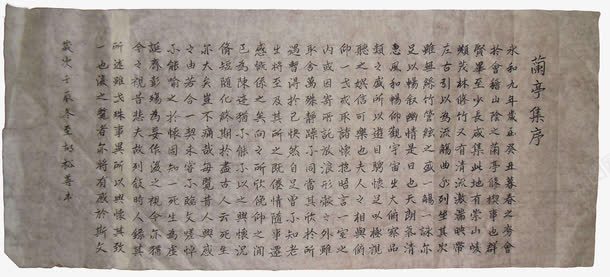 蘭亭集序
永和九年歲在癸丑暮春之初會
於會稽山陰之蘭亭脩稧事也群
賢畢至少長咸集此地有崇山峻
領茂林脩竹又有清流激湍暎帶
左右引以為流觴曲水列坐其次
雖無絲竹管絃之盛一觴一詠亦
足以暢敘幽情是日也天朗氣清
惠風和暢仰觀宇宙之大俯察品
類之盛所以遊目騁懷足以極視
聽之娛信可樂也夫人之相與俯
仰一世或取諸懷抱晤言一室之
內或因寄所託放浪形骸之外雖
取舍萬殊靜躁不同當其欣於所
遇暫得於己快然自足曾不知老
之將至及其所之既倦情隨事遷
感慨係之矣向之所欣俛仰之間
已為陳迹猶不能不以之興懷況
脩短隨化終期於盡古人云死生
亦大矣豈不痛哉每覽昔人興感
之由若合一契未嘗不臨文嗟悼
不能喻之於懷固知一死生為虛
誕齊彭殤為妄作後之視今亦猶
今之視昔悲夫故列敘時人錄其
所述雖世殊事異所以興懷其致
一也後之覽者亦將有感於斯文
歲次壬辰冬至胡裕